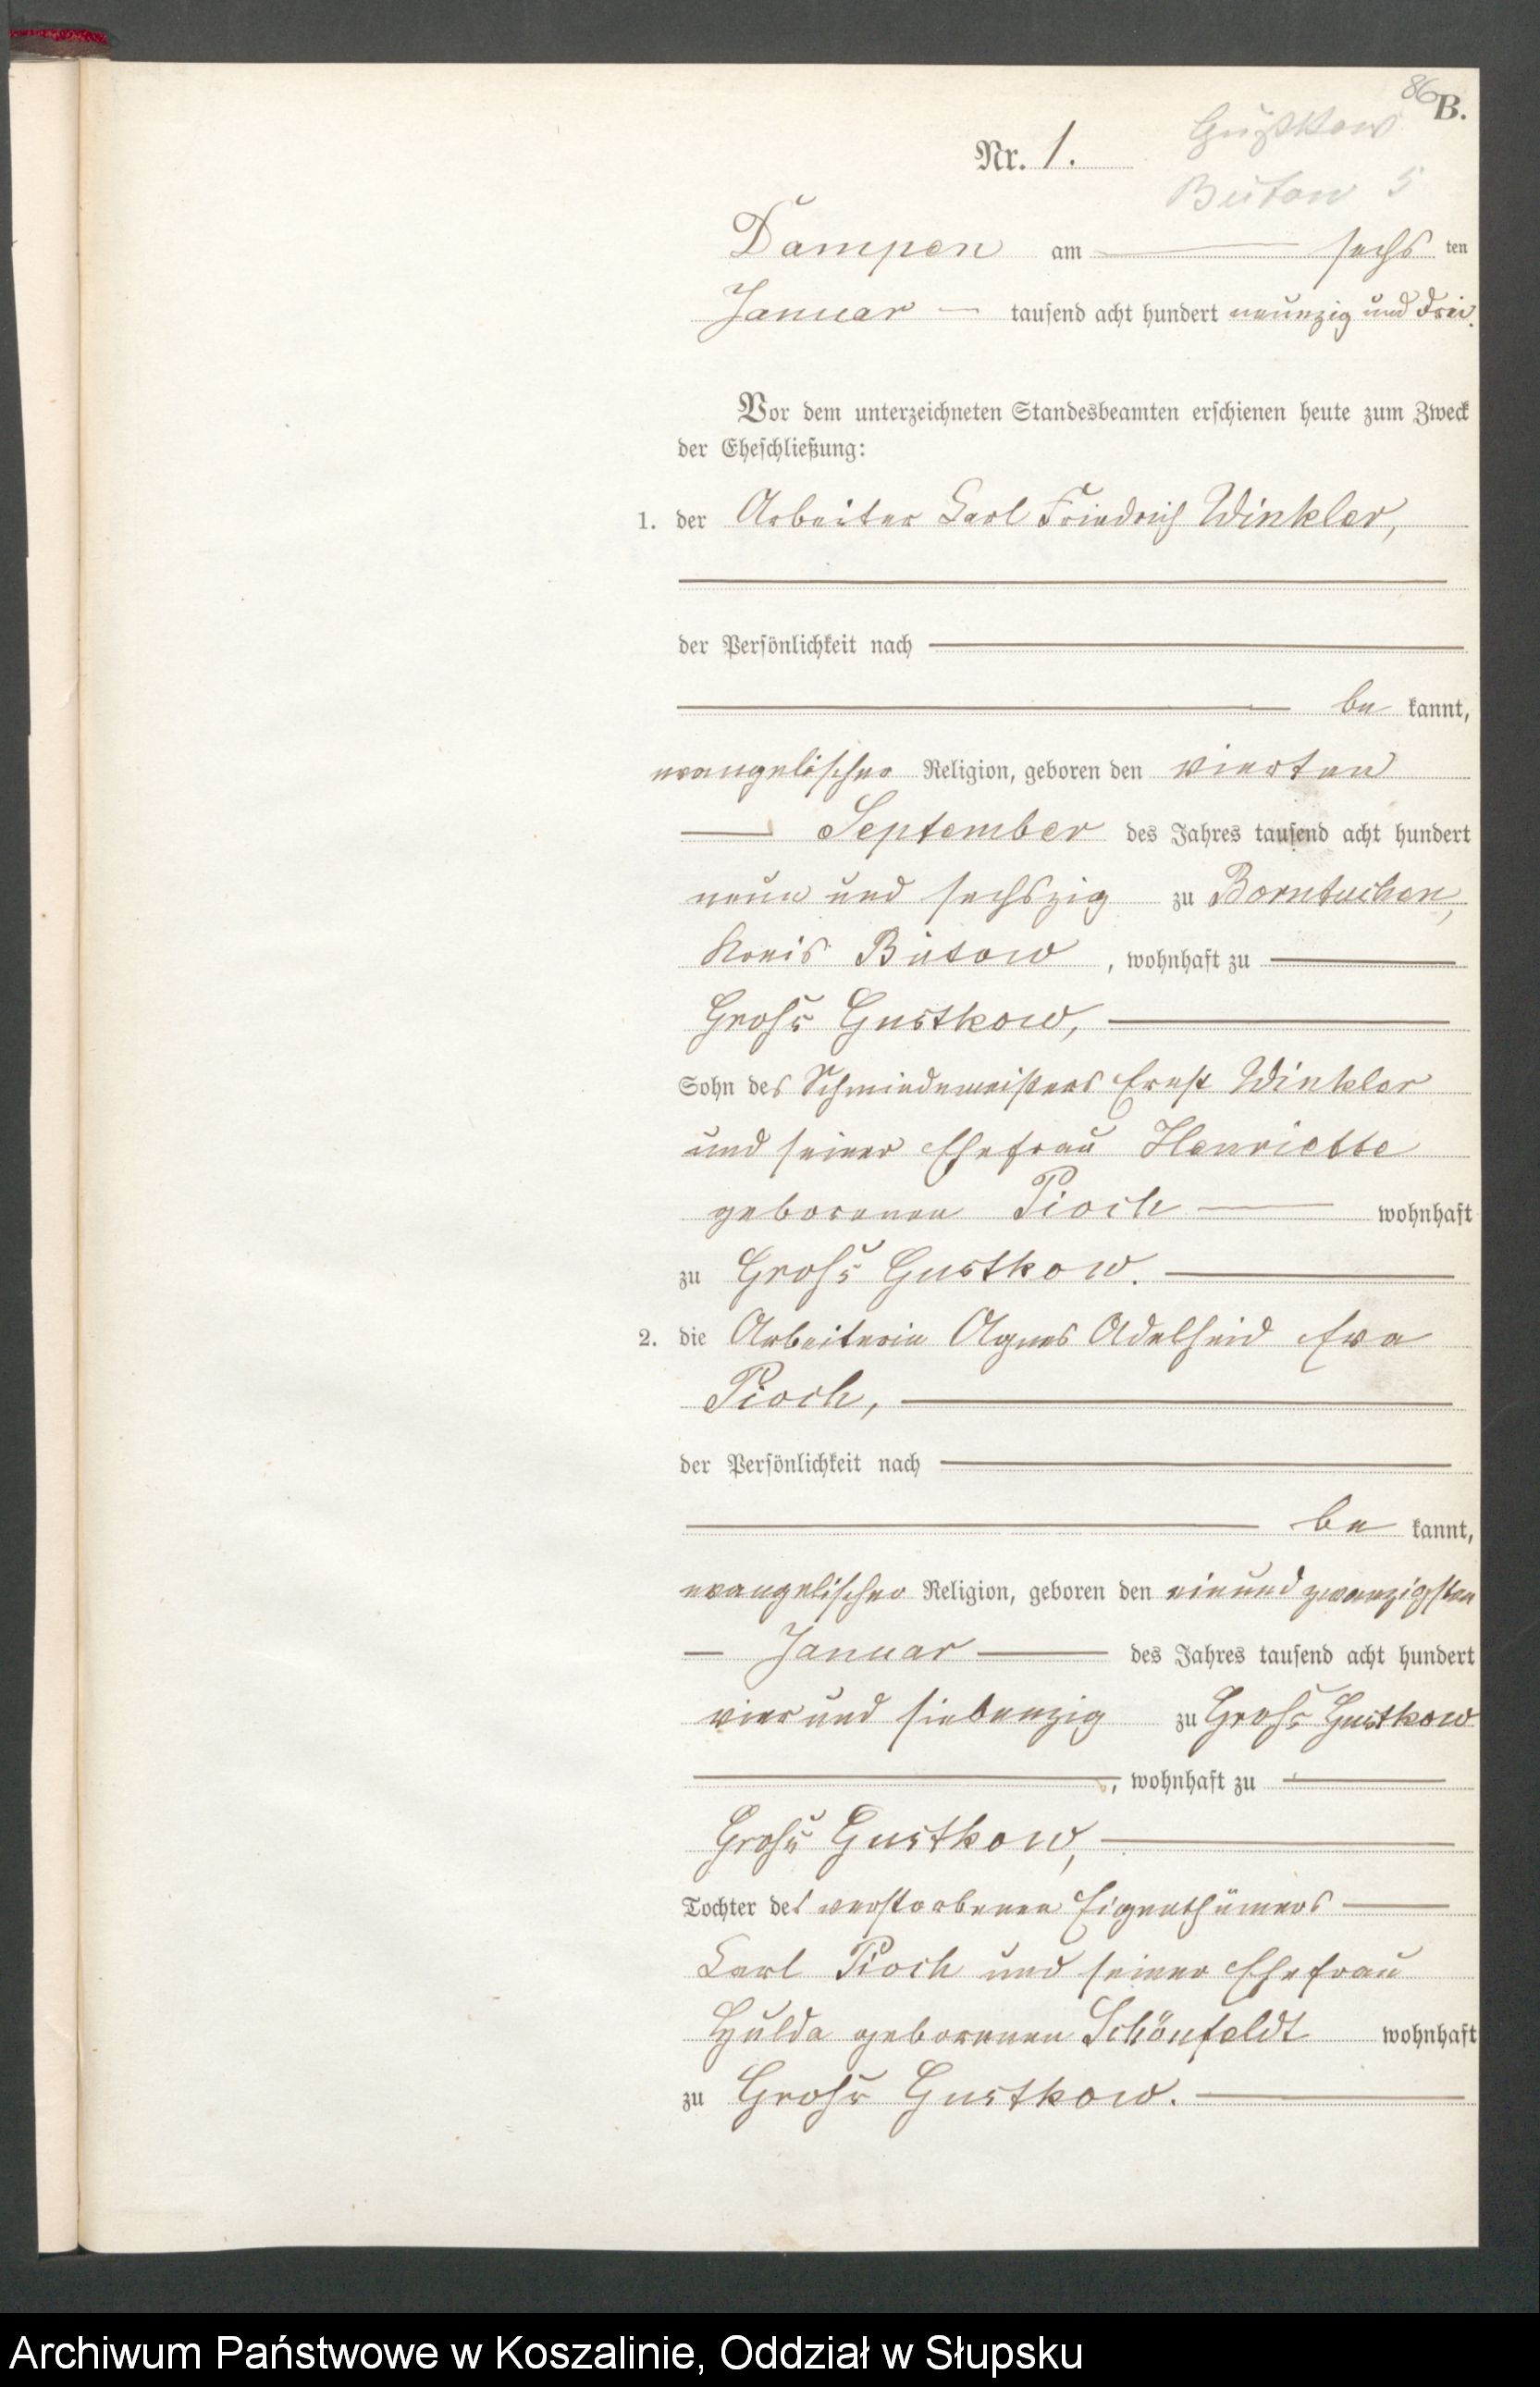 86
B.
Nr. 1.
Gustkow
Bütow 5
Dampen am sechs ten
Januar tausend acht hundert neunzig und drei.
Vor dem unterzeichneten Standesbeamten erschienen heute zum Zweck
der Eheschließung:
1. der Arbeiter Carl Friedrich Winkler,
der Persönlichkeit nach
be kannt,
evangelischer Religion, geboren den vierten
September des Jahres tausend acht hundert
neun und sechszig zu Borntuchen,
Kreis Bütow, wohnhaft zu
Groß Gustkow,
Sohn des Schmiedemeisters Ernst Winkler
und seiner Ehefrau Henriette
geborenen Pioch wohnhaft
zu Groß Gustkow.
2. die Arbeiterin Agnes Adelheid Eva
Pioch,
der Persönlichkeit nach
be kannt,
evangelischer Religion, geboren den einund zwanzigsten
Januar des Jahres tausend acht hundert
vier und siebenzig zu Groß Gustkow
, wohnhaft zu
Groß Gustkow,
Tochter des verstorbenen Eigenthümers
Carl Pioch und seiner Ehefrau
Hulda geborenen Schönfeldt wohnhaft
zu Groß Gustkow.
Archiwum Państwowe w Koszalinie, Oddział w Słupsku